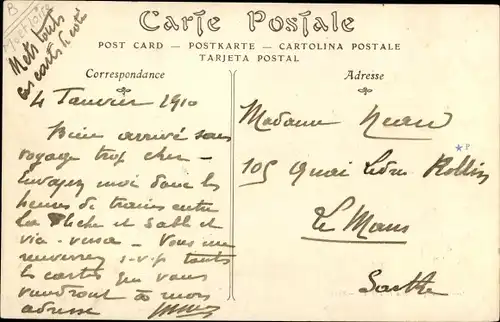 B
Mets touts
ces carts de coté
Carte Postale
POST CARD — POSTKARTE — CARTOLINA POSTALE
TARJETA POSTAL
Correspondance
4 Janvier 1910
Bien arrivé sans
voyage trop cher —
Envoyez moi donc les
heures de traines entre
La Flèche et Sablé et
vis-versa — Vous me
renverrez s-v-p touts
les cartes que vous
vaudront à mon
adresse
Adresse
Madame
105 Quai Ledru Rollin
Le Mans
Sarthe